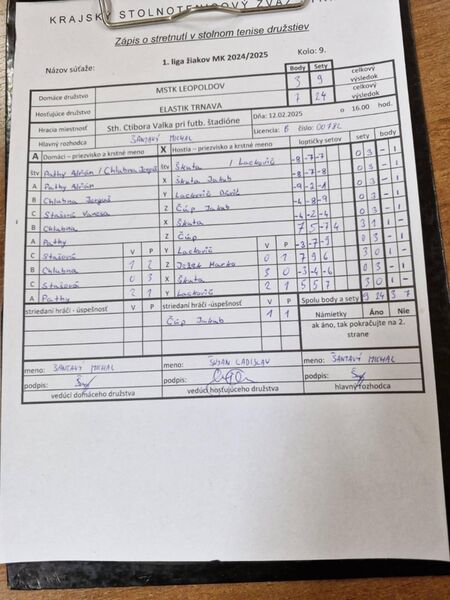 KRAJSKÝ STOLNOTENISOVÝ ZVÄZ
Zápis o stretnutí v stolnom tenise družstiev
Názov súťaže: 1. liga žiakov MK 2024/2025 Kolo: 9.
Body Sety
Domáce družstvo MSTK LEOPOLDOV 3 9 celkový výsledok
Hosťujúce družstvo ELASTIK TRNAVA 7 24 celkový výsledok
Hracia miestnosť Sth. Ctibora Valka pri futb. štadióne Dňa, 12.02.2025 o 16.00 hod.
Hlavný rozhodca ŠANTAVÝ MICHAL Licencia: B číslo: 0078L
A Domáci - priezvisko a krstné meno X Hostia - priezvisko a krstné meno loptičky setov sety body
štv Pathy Adrián / Chlabna štv Škuta / Lackovič -8 -7 -7 0 3 - 1
A Pathy Adrián X Škuta Jakub -8 -7 -8 0 3 - 1
B Chlabna Y Lackovič -9 -2 -1 0 3 - 1
C Stašová Z Čúp Jakub -4 -8 -9 0 3 - 1
B Chlabna X Škuta -4 -2 -4 0 3 - 1
A Pathy Z Čúp 7 5 -7 4 3 1 1 -
C Stašová V P Y Lackovič V P -3 -7 -9 0 3 - 1
B Chlabna 1 2 Z 0 1 7 9 6 3 0 1 -
C Stašová 0 3 X Škuta 3 0 -3 -4 -6 0 3 - 1
A Pathy 2 1 Y Lackovič 2 1 5 5 7 3 0 1 -
striedaní hráči - úspešnosť V P striedaní hráči - úspešnosť V P Spolu body a sety 9 24 3 7
Čúp Jakub 1 1 Námietky Áno Nie
ak áno, tak pokračujte na 2. strane
meno: ŠANTAVÝ MICHAL meno: LADISLAV meno: ŠANTAVÝ MICHAL
podpis: podpis: podpis:
vedúci domáceho družstva vedúci hosťujúceho družstva hlavný rozhodca